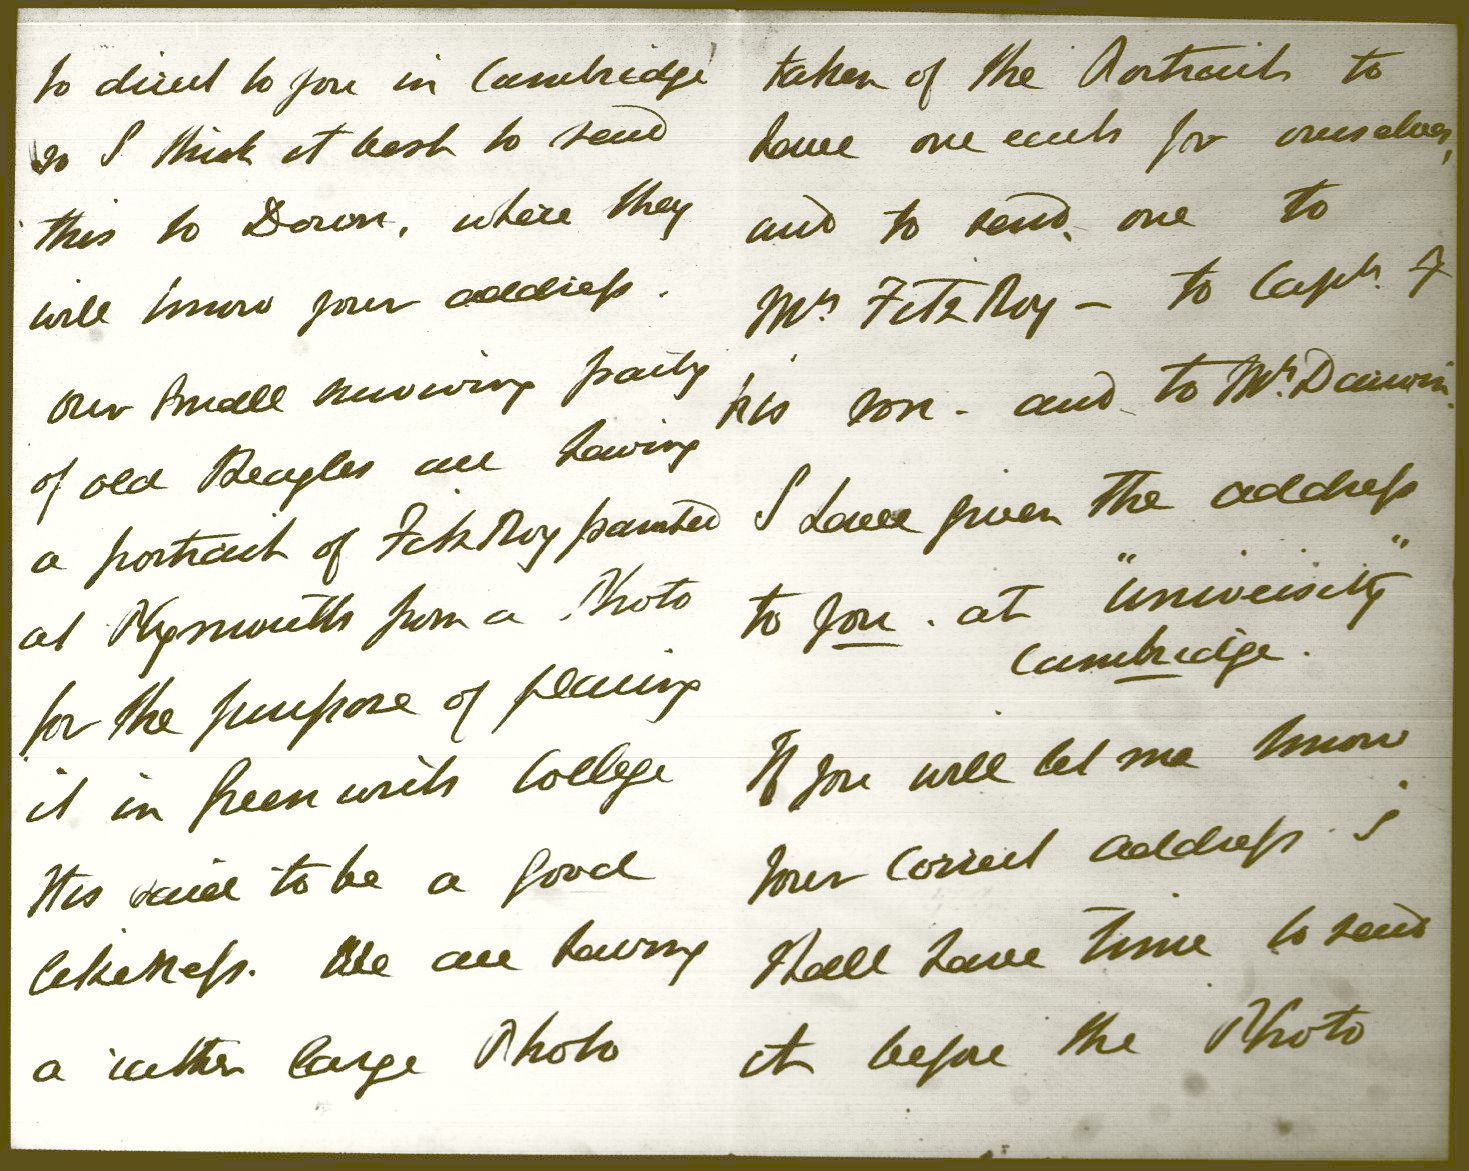 to direct to you in Cambridge
so I think it best to send
this to Down, where they
will know your address.
our small surviving party
of old Beagles are having
a portrait of FitzRoy painted
at Plymouth from a Photo
for the purpose of placing
it in Greenwich College
It is said to be a good
likeness. We are having
a rather large Photo
taken of the Portrait to
have one each for ourselves,
and to send one to
Mrs FitzRoy – to Capt. F
his son - and to Mr. Darwin.
I have given the address
to you . at "University"
Cambridge.
If you will let me know
your correct address I
shall have time to send
it before the Photo